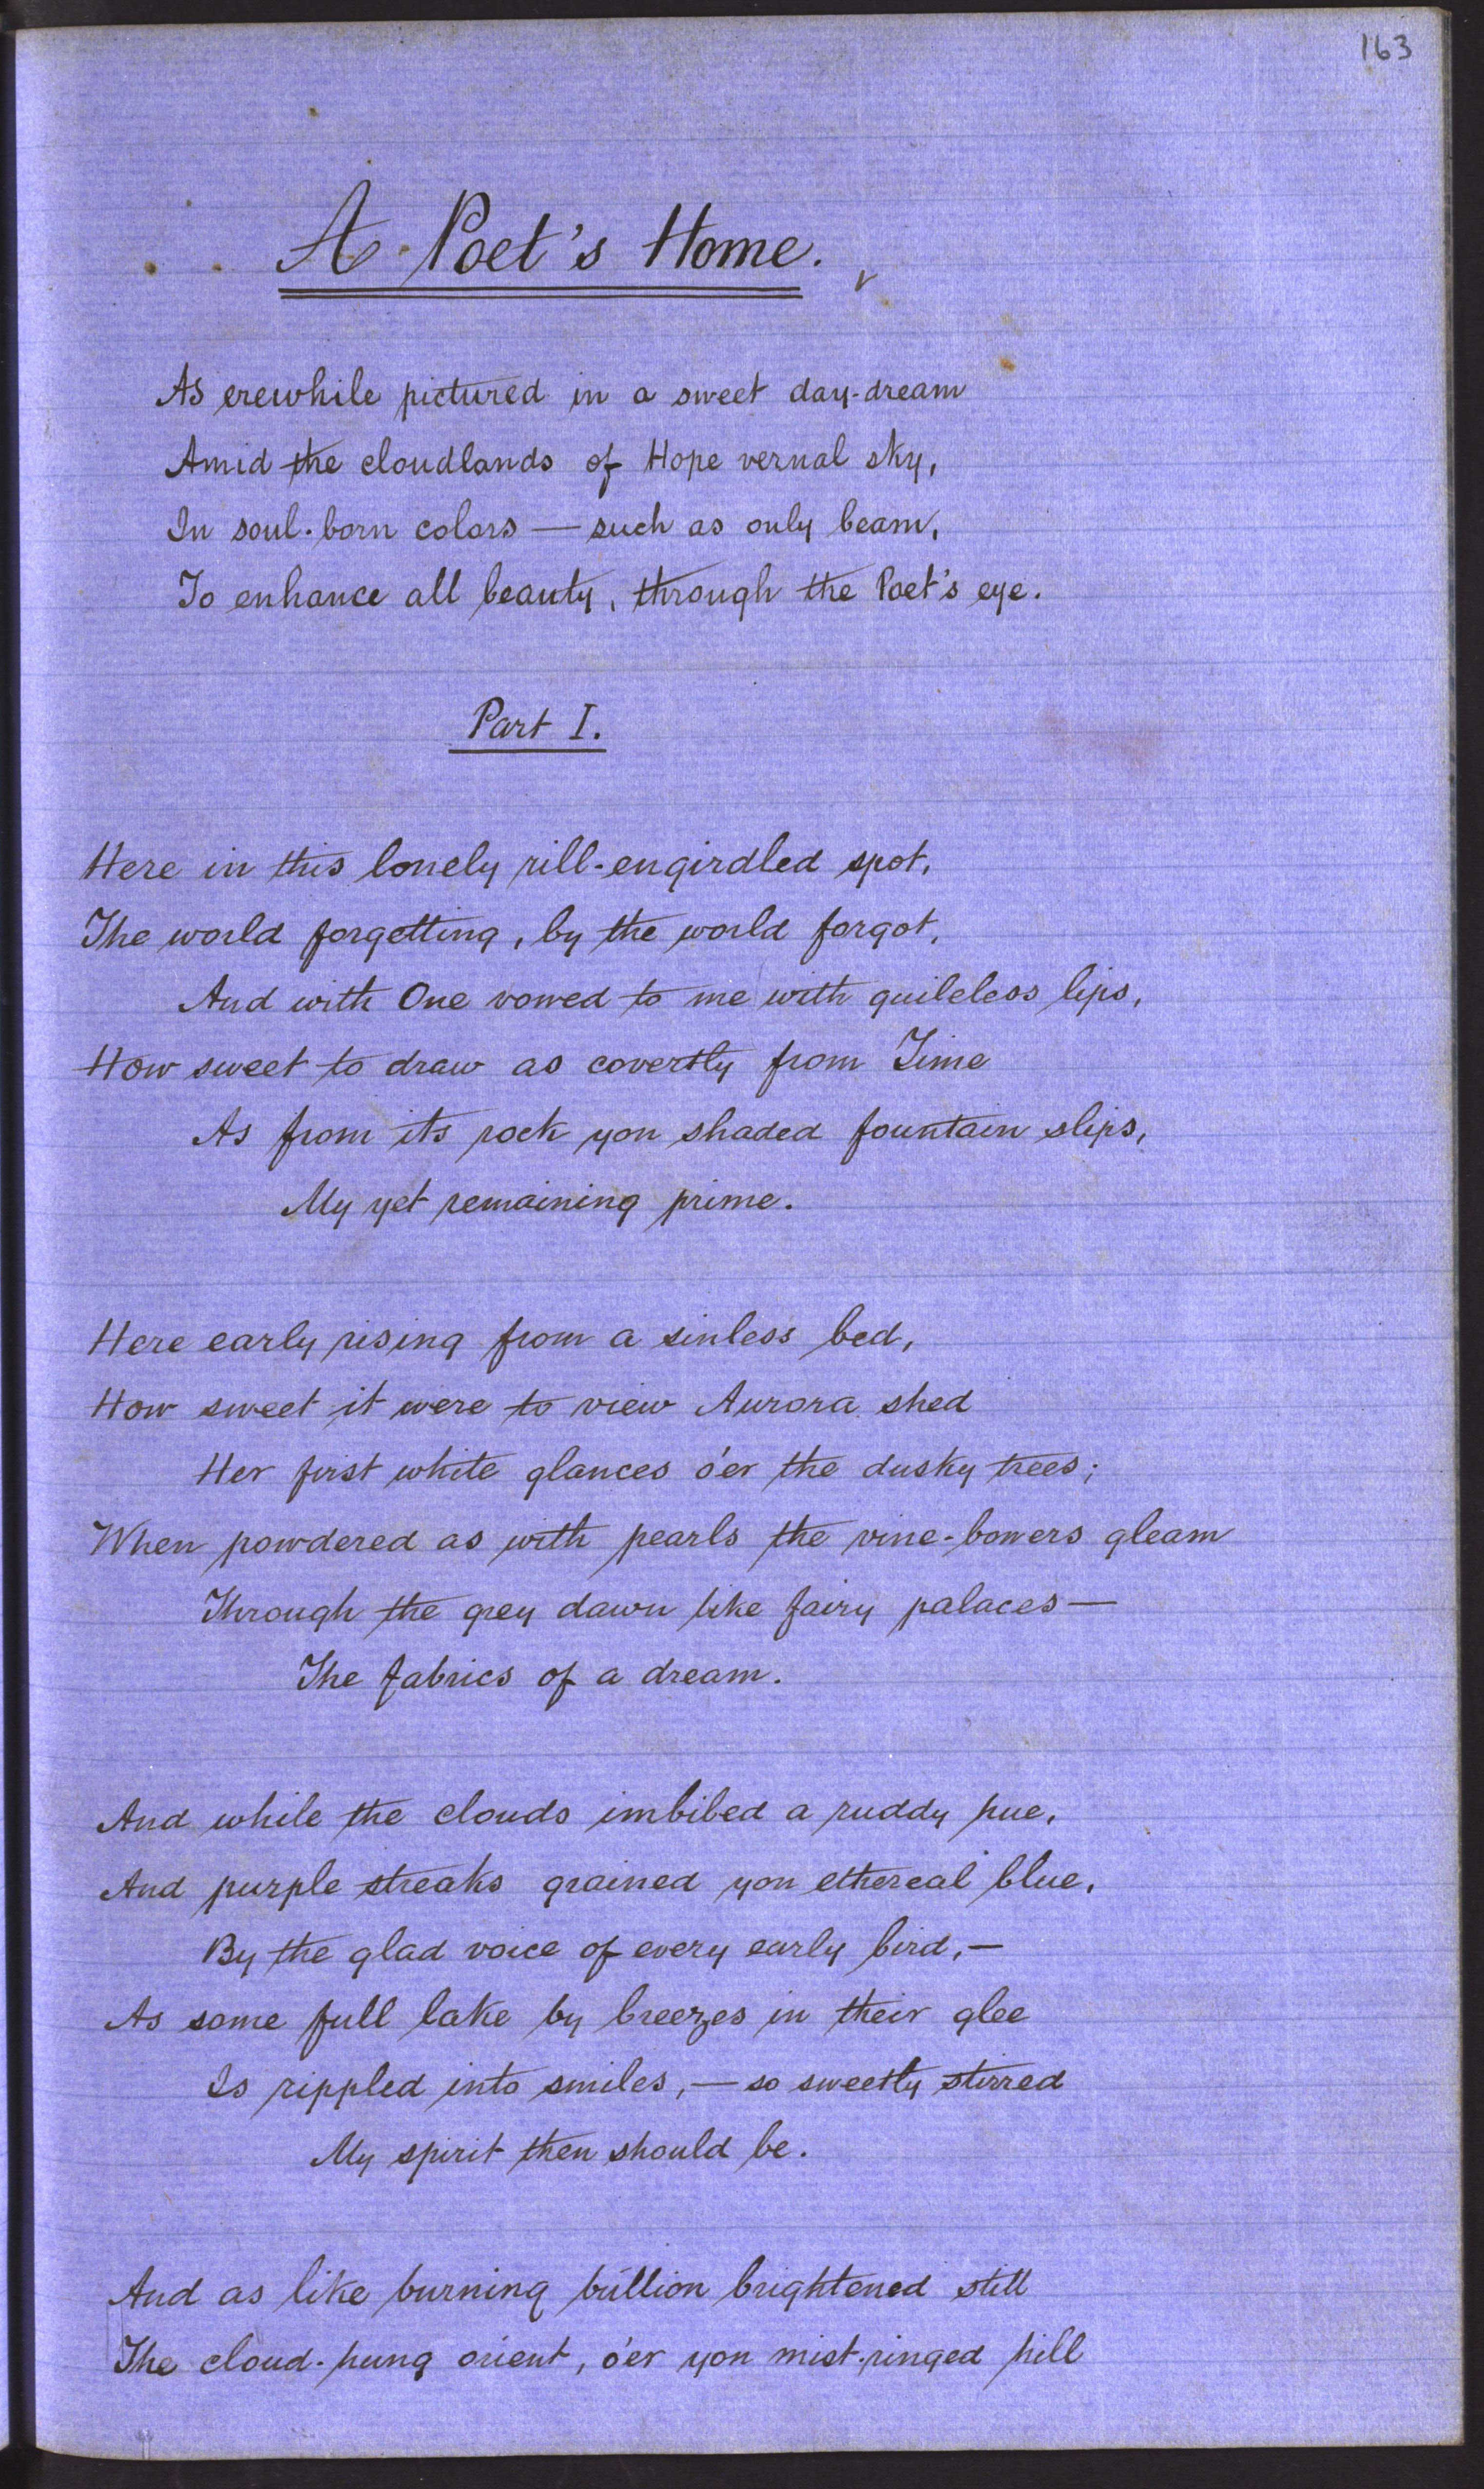 163
A Poet's Home.
As erewhile pictured in a sweet day-dream
Amid the cloudlands of Hope vernal sky,
In soul-born colors — such as only beam,
To enhance all beauty, through the Poet's eye.
Part I.
Here in this lonely rill-engirdled spot,
The world forgetting, by the world forgot,
And with One vowed to me with guileless lips,
How sweet to draw as covertly from Time
As from its rock yon shaded fountain slips,
My yet remaining prime.
Here early rising from a sinless bed,
How sweet it were to view Aurora shed
Her first white glances o'er the dusky trees;
When powdered as with pearls the vine-bowers gleam
Through the grey dawn like fairy palaces —
The fabrics of a dream.
And while the clouds imbibed a ruddy hue,
And purple streaks grained yon ethereal blue,
By the glad voice of every early bird, —
As some full lake by breezes in their glee
Is rippled into smiles, — so sweetly stirred
My spirit then should be.
And as like burning bullion brightened still
The cloud-hung orient, o'er yon mist-ringed hill